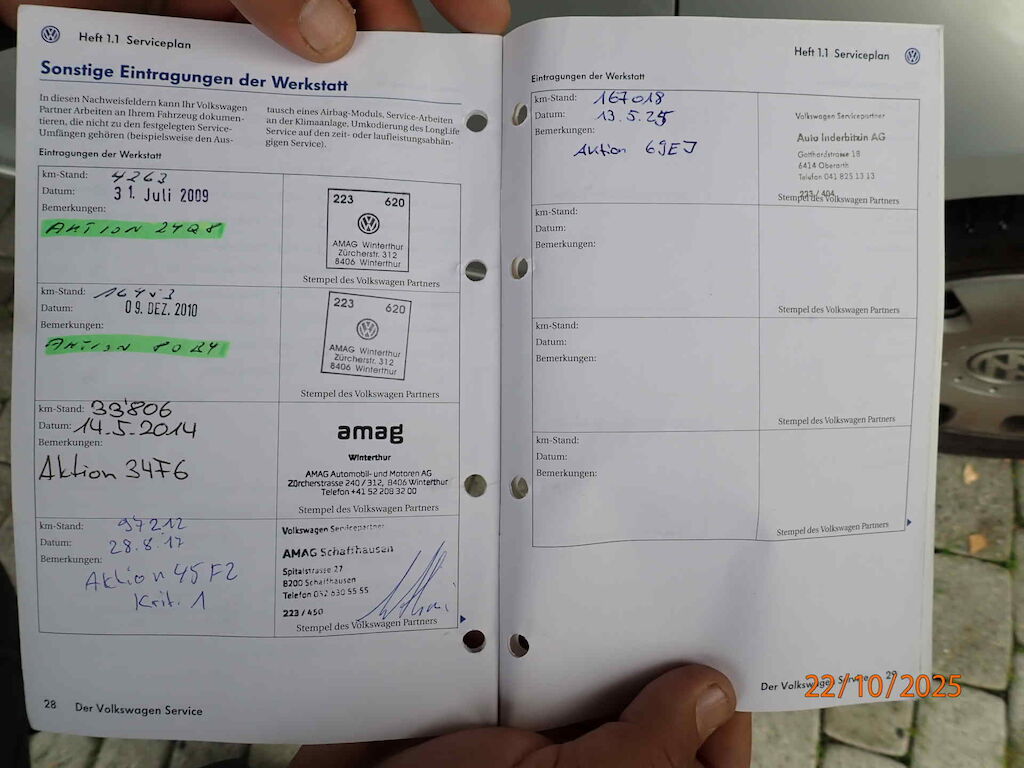 Heft 1.1 Serviceplan
Sonstige Eintragungen der Werkstatt
In diesen Nachweisfeldern kann Ihr Volkswagen
Partner Arbeiten an Ihrem Fahrzeug dokumen-
tieren, die nicht zu den festgelegten Service-
Umfängen gehören (beispielsweise den Aus-
tausch eines Airbag-Moduls, Service-Arbeiten
an der Klimaanlage, Umkodierung des LongLife
Service auf den zeit- oder laufleistungsabhän-
gigen Service).
Eintragungen der Werkstatt
km-Stand: 4263
Datum: 31. Juli 2009
Bemerkungen:
AKTION 24Q8
223 620
AMAG Winterthur
Zürcherstr. 312
8406 Winterthur
Stempel des Volkswagen Partners
km-Stand:
Datum: 09. DEZ. 2010
Bemerkungen:
AKTION
223 620
AMAG Winterthur
Zürcherstr. 312
8406 Winterthur
Stempel des Volkswagen Partners
km-Stand: 33'806
Datum: 14.5.2014
Bemerkungen:
Aktion 34F6
amag
Winterthur
AMAG Automobil- und Motoren AG
Zürcherstrasse 240 / 312, 8406 Winterthur
Telefon +41 52 208 32 00
Stempel des Volkswagen Partners
km-Stand: 97212
Datum: 28.8.17
Bemerkungen:
Aktion 45F2
Krit. 1
Volkswagen Servicepartner
AMAG Schaffhausen
Spitalstrasse 27
8200 Schaffhausen
Telefon 052 630 55 55
223 / 450
Stempel des Volkswagen Partners
28 Der Volkswagen Service
Heft 1.1 Serviceplan
Eintragungen der Werkstatt
km-Stand: 167018
Datum: 13.5.25
Bemerkungen:
Aktion 69EJ
Volkswagen Servicepartner
Auto Inderbitzin AG
Gotthardstrasse 18
6414 Oberarth
Telefon 041 825 13 13
223 / 404
Stempel des Volkswagen Partners
km-Stand:
Datum:
Bemerkungen:
Stempel des Volkswagen Partners
km-Stand:
Datum:
Bemerkungen:
Stempel des Volkswagen Partners
km-Stand:
Datum:
Bemerkungen:
Stempel des Volkswagen Partners
Der Volkswagen Service 29
22/10/2025